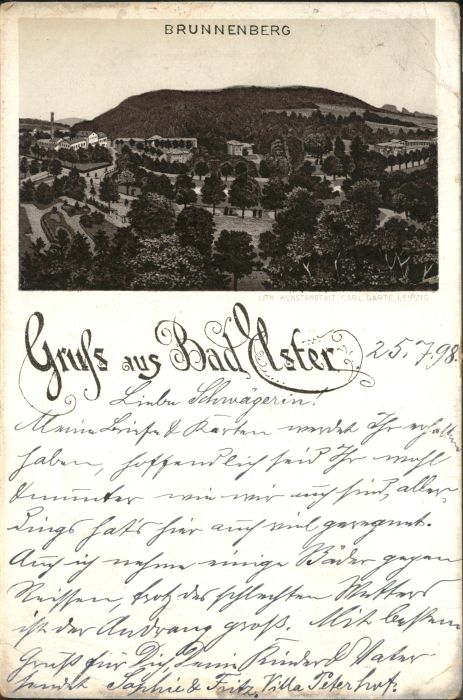 BRUNNENBERG
LITH. KUNSTANSTALT CARL GARTE, LEIPZIG
Gruß aus Bad Elster. 25.7.98.
Liebe Schwägerin!
Meine Briefe & Karten werdet Ihr erhalten
haben, hoffendlich seid Ihr wohl
& munter wie wir auch sind, aller-
dings hat's hier auch viel geregnet.
Auch ich nehme einige Bäder gegen
Reissen, trotz des schlechten Wetters
ist der Andrang groß. Mit bestem
Gruß für Dich, Deine Kinder & Vater
sendet Sophie & Fritz, Villa Peterhof.